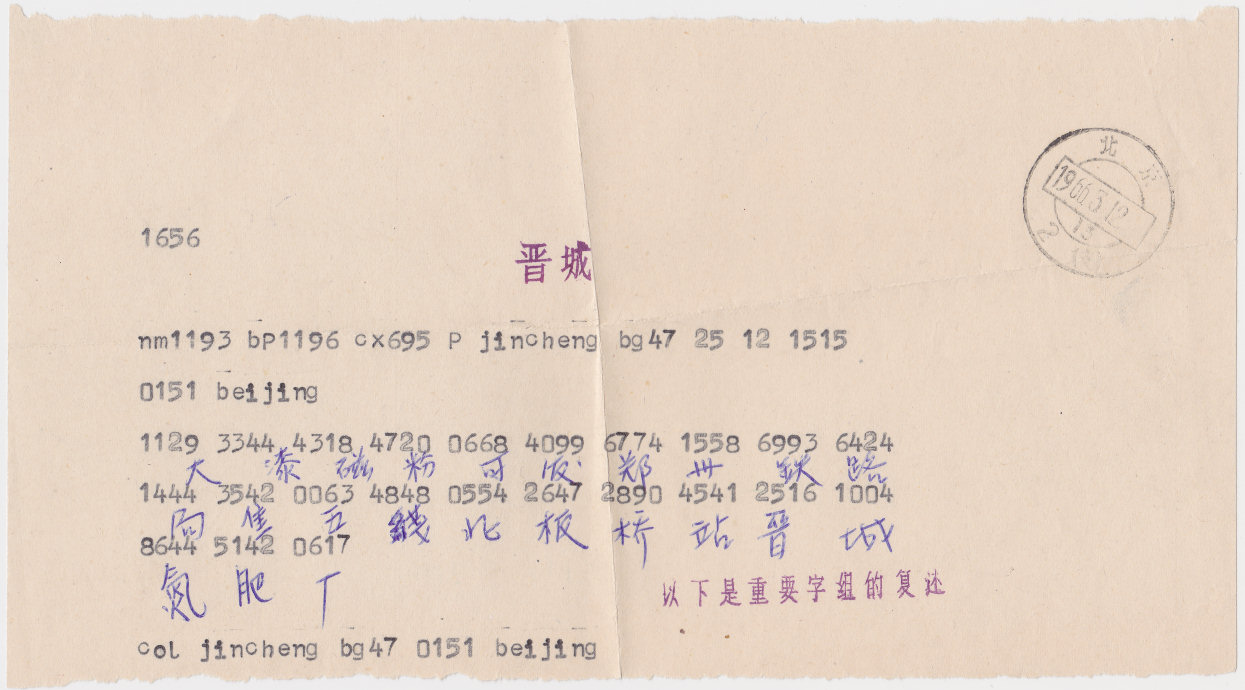 北京
1966.3.12
13
2
1656
晋城
nm1193 bp1196 cx695 p jincheng bg47 25 12 1515
0151 beijing
1129 3344 4318 4720 0668 4099 6774 1558 6993 6424
大 漆 磁 粉 可 版 郑 州 铁 路
1444 3542 0063 4848 0554 2647 2890 4541 2516 1004
局 焦 五 綫 北 板 桥 站 晋 城
8644 5142 0617
氮 肥 厂
以下是重要字组的复述
col jincheng bg47 0151 beijing